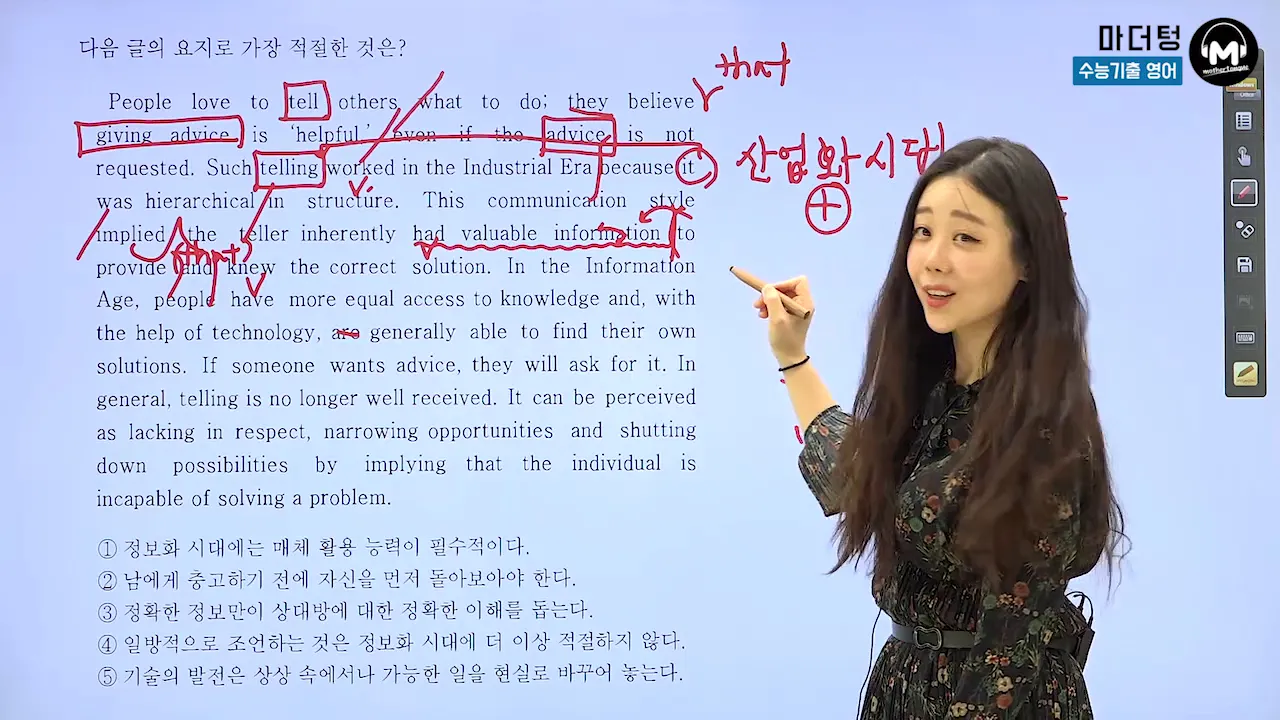 다음 글의 요지로 가장 적절한 것은?
마더텅
수능기출 영어
M
mothertongue
that
People love to tell others what to do; they believe
giving advice is ‘helpful,’ even if the advice is not
산업화 시대
requested. Such telling worked in the Industrial Era because it
was hierarchical in structure. This communication style
implied the teller inherently had valuable information to
(that)
provide and knew the correct solution. In the Information
Age, people have more equal access to knowledge and, with
the help of technology, are generally able to find their own
solutions. If someone wants advice, they will ask for it. In
general, telling is no longer well received. It can be perceived
as lacking in respect, narrowing opportunities and shutting
down possibilities by implying that the individual is
incapable of solving a problem.
① 정보화 시대에는 매체 활용 능력이 필수적이다.
② 남에게 충고하기 전에 자신을 먼저 돌아보아야 한다.
③ 정확한 정보만이 상대방에 대한 정확한 이해를 돕는다.
④ 일방적으로 조언하는 것은 정보화 시대에 더 이상 적절하지 않다.
⑤ 기술의 발전은 상상 속에서나 가능한 일을 현실로 바꾸어 놓는다.